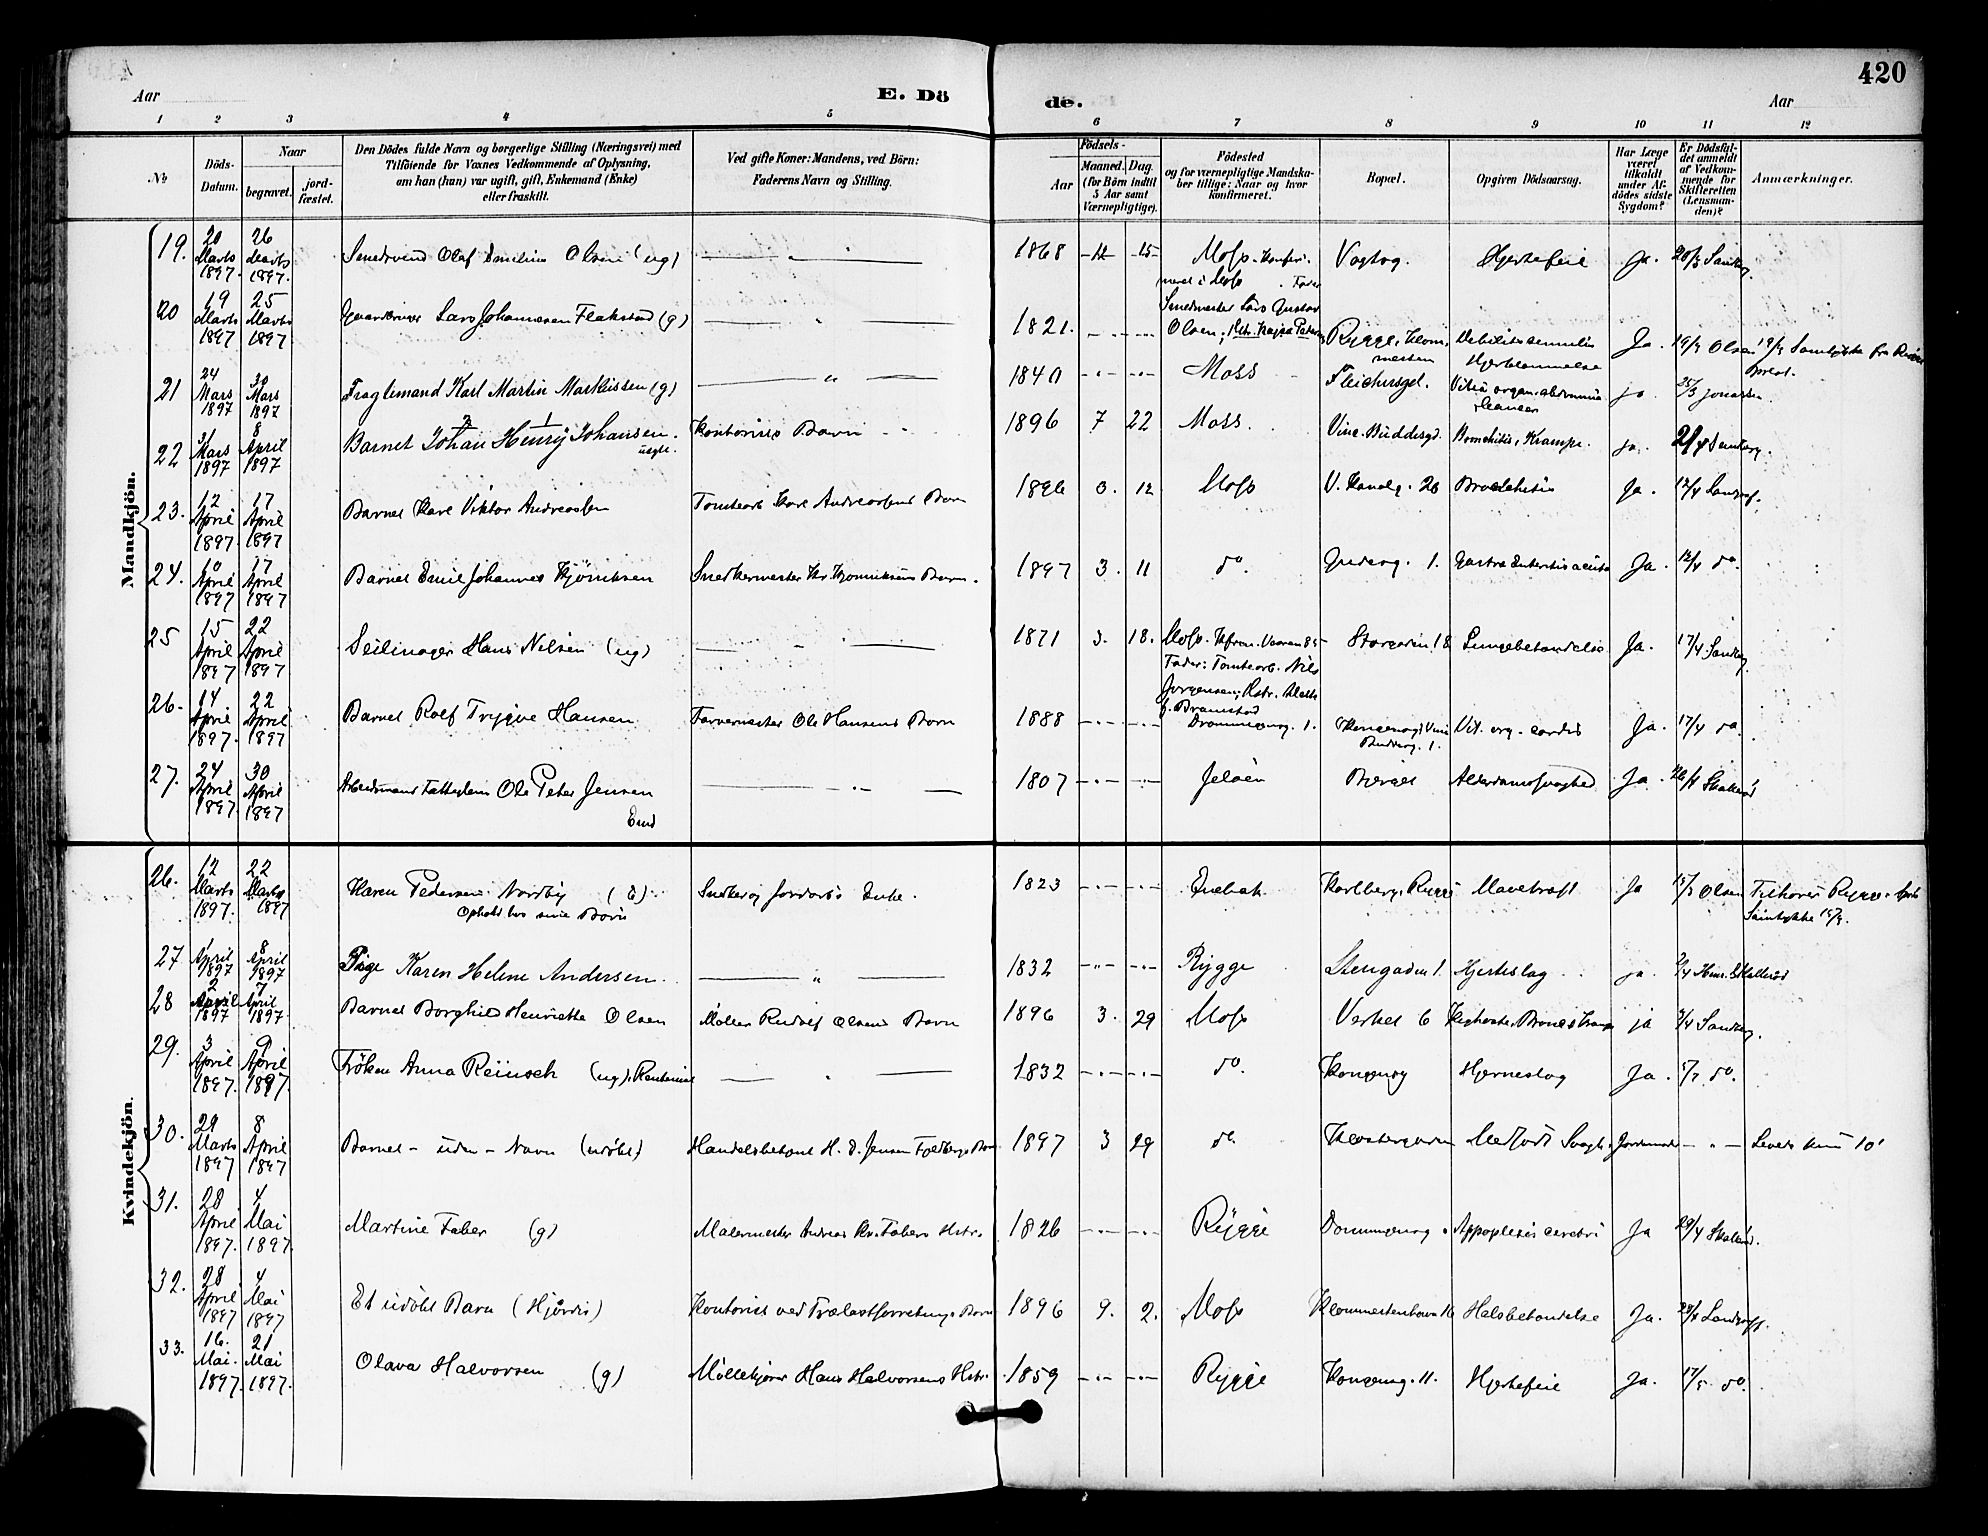 420
Aar
E. Dö
de.
Aar
1 2 3 4 5 6 7 8 9 10 11 12
No
Döds-Datum.
Naar
begravet.
jord-fæstet.
Den Dödes fulde Navn og borgerlige Stilling (Næringsvei) med
Tilföiende for Voxnes Vedkommende af Oplysning,
om han (hun) var ugift, gift, Enkemand (Enke)
eller fraskilt.
Ved gifte Koner: Mandens, ved Börn:
Faderens Navn og Stilling.
Födsels-
Aar
Maaned. Dag.
(for Börn indtil
5 Aar samt
Værnepligtige).
Födested
og for værnepligtige Mandska-
ber tillige: Naar og hvor
konfirmeret.
Bopæl.
Opgiven Dödsaarsag.
Har Læge
været
tilkaldt
under Af-
dödes sidste
Sygdom?
Er Dödsfal-
det anmeldt
af Vedkom-
mende for
Skifteretten
(Lensman-
den)?
Anmærkninger.
Mandkjön.
19. 20 Marts 1897. 26 Marts 1897. Smedsvend Olaf Emilius Olsen (ug) 1868 12 15 Moss. Konfir-
meret i Moss. Fader
Smedmester Lars Gustav
Olsen; Vogtog. Hjertefeil Ja. 20/3 Sandberg.
20 19 Marts 1897 25 Marts 1897 Gaardbruger Lars Johannesen Flakstad (g) 1821. Rygge, Klom-
mesten Debilitas senilis
Hjertelammelse Ja. 19/3 Olsen 19/3 Samtykke fra Rygge
21 24 Mars 1897 30 Mars 1897 Fragtemand Karl Martin Markussen (g) 1840 Moss Fleichersgd. Vitia organ. abdominis
Cancer ja. 25/3 Jonassen.
22 31 Mars 1897 8 April 1897 Barnet Johan Henry Johansen. Kontorists Barn 1896 7 22 Moss. Vinc. Buddesgd. Bronchitis, Krampe. ja. 2/4 Sandberg.
23. 12 April 1897. 17 April 1897 Barnet Karl Viktor Andreassen Tomtearb. Karl Andreassens Barn 1896 0. 12 Moss V. Kanalg. 20 Bronchitis Ja. 12/4 Sandberg.
24. 10 April 1897 17 April 1897 Barnet Emil Johannes Kjöniksen Snedkermester Kr. Kjonniksens Barn. 1897 3. 11 do. Gudeog. 1. Gastro Enteritis acuta Ja. 12/4 do.
25 15 April 1897 22 April 1897 Seilmager Hans Nilsen (ug) 1871 3. 18. Moss. Kfrm. Vaaren 85
Fader: Tomtearb. Nils
Jörgensen; Hstr. Mette
f. Bramstad Storgaden 18 Lungebetændelse Ja. 17/4 Sandberg.
26. 14 April 1897. 22 April 1897 Barnet Rolf Trygve Hansen Farvermester Ole Hansens Barn 1888 Dronningensg. 1. Vit. org. cordis Ja. 17/4 do.
27. 24 April 1897 30 April 1897 Arbeidsmand Fattiglem Ole Peter Jensen
Enkd 1807 Jelöen Alderdomssvaghed Ja. 26/4 Skallerud
Kvindekjön.
26. 12 Marts 1897. 22 Marts 1897 Karen Pedersen Nordby (E)
Ophold hos sine Börn Snedker og Jordarb's Enke. 1823 Enebak Karlberg, Rygge Mavekræft Ja 15/3 Olsen Tilhörer Rygge
Samtykke 15/3.
27 1 April 1897 8 April 1897 Pige Karen Helene Andersen. 1832 Rygge Stengaden 1. Hjerteslag ja. 2/4 Henr. Skallerud
28 2 April 1897 7 April 1897. Barnet Borghild Henriette Olsen Möller Rudolf Olsens Barn 1896 3. 29 Moss Verket 6 ja 3/4 Sandberg.
29. 3 April 1897. 9 April 1897. Fröken Anna Reinsch (ug), Rentenist 1832 do. Kongensg Hjerneslag Ja. 5/4 do.
30. 29 Marts 1897 8 April 1897 Barnet – uden – Navn (udöbt) Handelsbetjent H. D. Jensen Fjeldbergs Barn 1897 3 29 do. Klostergaden Medfödt Svagh. Jordmoder Levede kun 10'
31. 28 April 1897. 4 Mai 1897. Martine Faber (g) Malermester Andreas Kr. Fabers Hstr. 1826 Rygge Dronningensg Appoplexia cerebri Ja 29/4 Skallerud.
32. 28 April 1897 4 Mai 1897 Et udöbt Barn (Hjördis) Kontorist ved Trælastforretnings Barn 1896 9. 2. Moss Klommestenhaven 16 Halsbetændelse Ja. 28/4 Sandberg.
33. 16. Mai. 1897. 21 Mai 1897. Olava Halvorsen (g) Möllekjörer Hans Halvorsens Hstr. 1859 Rygge Kongensg. 11. Hjertefeil Ja. 17/5 do.